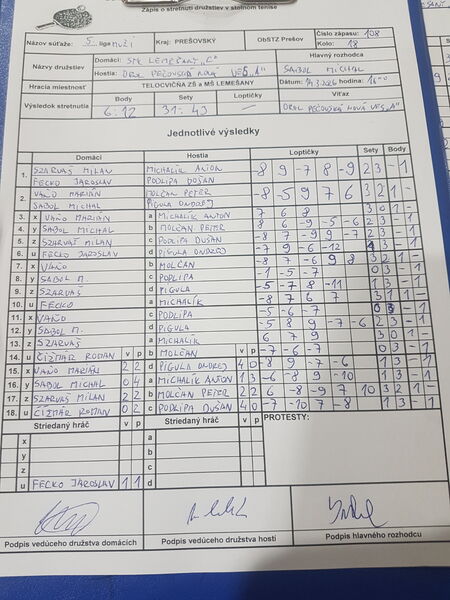 Zápis o stretnutí družstiev v stolnom tenise
Názov súťaže: 5. liga muži Kraj: PREŠOVSKÝ ObSTZ Prešov Číslo zápasu: 108
Kolo: 18
Názvy družstiev Domáci: STK LEMEŠANY "C" Hlavný rozhodca
Hostia: ORAL PEČOVSKÁ NOVÁ VES "A" SABOL MICHAL
Hracia miestnosť TELOCVIČŇA ZŠ a MŠ LEMEŠANY Dátum: hodina:
Výsledok stretnutia Body Sety Loptičky Víťaz
6:12 31:43 ORAL PEČOVSKÁ NOVÁ VES "A"
Jednotlivé výsledky
Domáci Hostia Loptičky Sety Body
1. SZARVAŠ MILAN MICHALIK ANTON -8 9 -7 8 -9 2 3 - 1
FECKO JAROSLAV PODLIPA DUŠAN
2. VAŇO MARIÁN MOLČAN PETER -8 -5 9 7 6 3 2 1 -
SABOL MICHAL PIGULA ONDREJ
3. x VAŇO MARIÁN a MICHALIK ANTON 7 6 8 3 0 1 -
4. y SABOL MICHAL b MOLČAN PETER 8 6 -9 -5 -6 2 3 - 1
5. z SZARVAŠ MILAN c PODLIPA DUŠAN -8 7 -9 9 -7 2 3 - 1
6. u FECKO JAROSLAV d PIGULA ONDREJ -7 9 -6 -12 1 3 - 1
7. x VAŇO b MOLČAN -8 7 -6 9 8 3 2 1 -
8. y SABOL M c PODLIPA -1 -5 -7 0 3 - 1
9. z SZARVAŠ d PIGULA -5 -7 8 -11 1 3 - 1
10. u FECKO a MICHALÍK -8 7 6 7 3 1 1 -
11. x VAŇO c PODLIPA -5 -6 -7 0 3 - 1
12. y SABOL M. d PIGULA -5 8 9 -7 -6 2 3 - 1
13. z SZARVAŠ a MICHALIK 6 7 9 3 0 1 -
14. u ČIŽMÁR ROMAN v p b MOLČAN v p -7 -6 -7 0 3 - 1
15. x VAŇO MARIÁN 2 2 d PIGULA ONDREJ 4 0 -8 9 -7 -6 1 3 - 1
16. y SABOL MICHAL 0 4 a MICHALIK ANTON 1 3 -6 8 -9 -10 1 3 - 1
17. z SZARVAŠ MILAN 2 2 b MOLČAN PETER 2 2 6 -8 -9 7 10 3 2 1 -
18. u ČIŽMÁR ROMAN 0 2 c PODLIPA DUŠAN 4 0 -7 -10 7 -8 1 3 - 1
Striedaný hráč v p Striedaný hráč v p PROTESTY:
x a
y b
z c
u FECKO JAROSLAV 1 1 d
Podpis vedúceho družstva domácich Podpis vedúceho družstva hostí Podpis hlavného rozhodcu